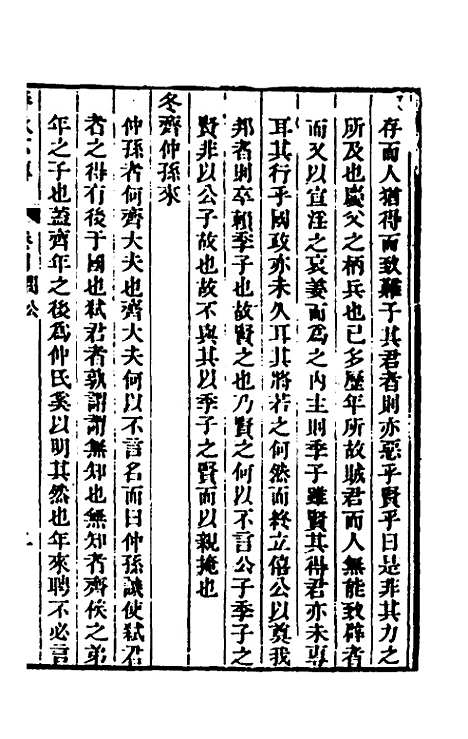 存而人猶得而致難于其君者則亦惡乎賢乎曰是非其力之
所及也慶父之柄兵也已多歷年所故賊君而人無能致辟者
而又以宣淫之哀姜而為之內主則季子雖賢其得君亦未專
耳其行乎國政亦未久耳其將若之何然而終立僖公以奠我
邦者則卒賴季子也故賢之也乃賢之何以不言公子季子之
賢非以公子故也故不與其以季子之賢而以親掩也
冬齊仲孫來
仲孫者何齊大夫也齊大夫何以不言名而曰仲孫譏使弒君
者之得有後于國也弒君者孰謂謂無知也無知者齊侯之弟
年之子也蓋齊年之後為仲氏奚以明其然也年來聘不必言
閔公